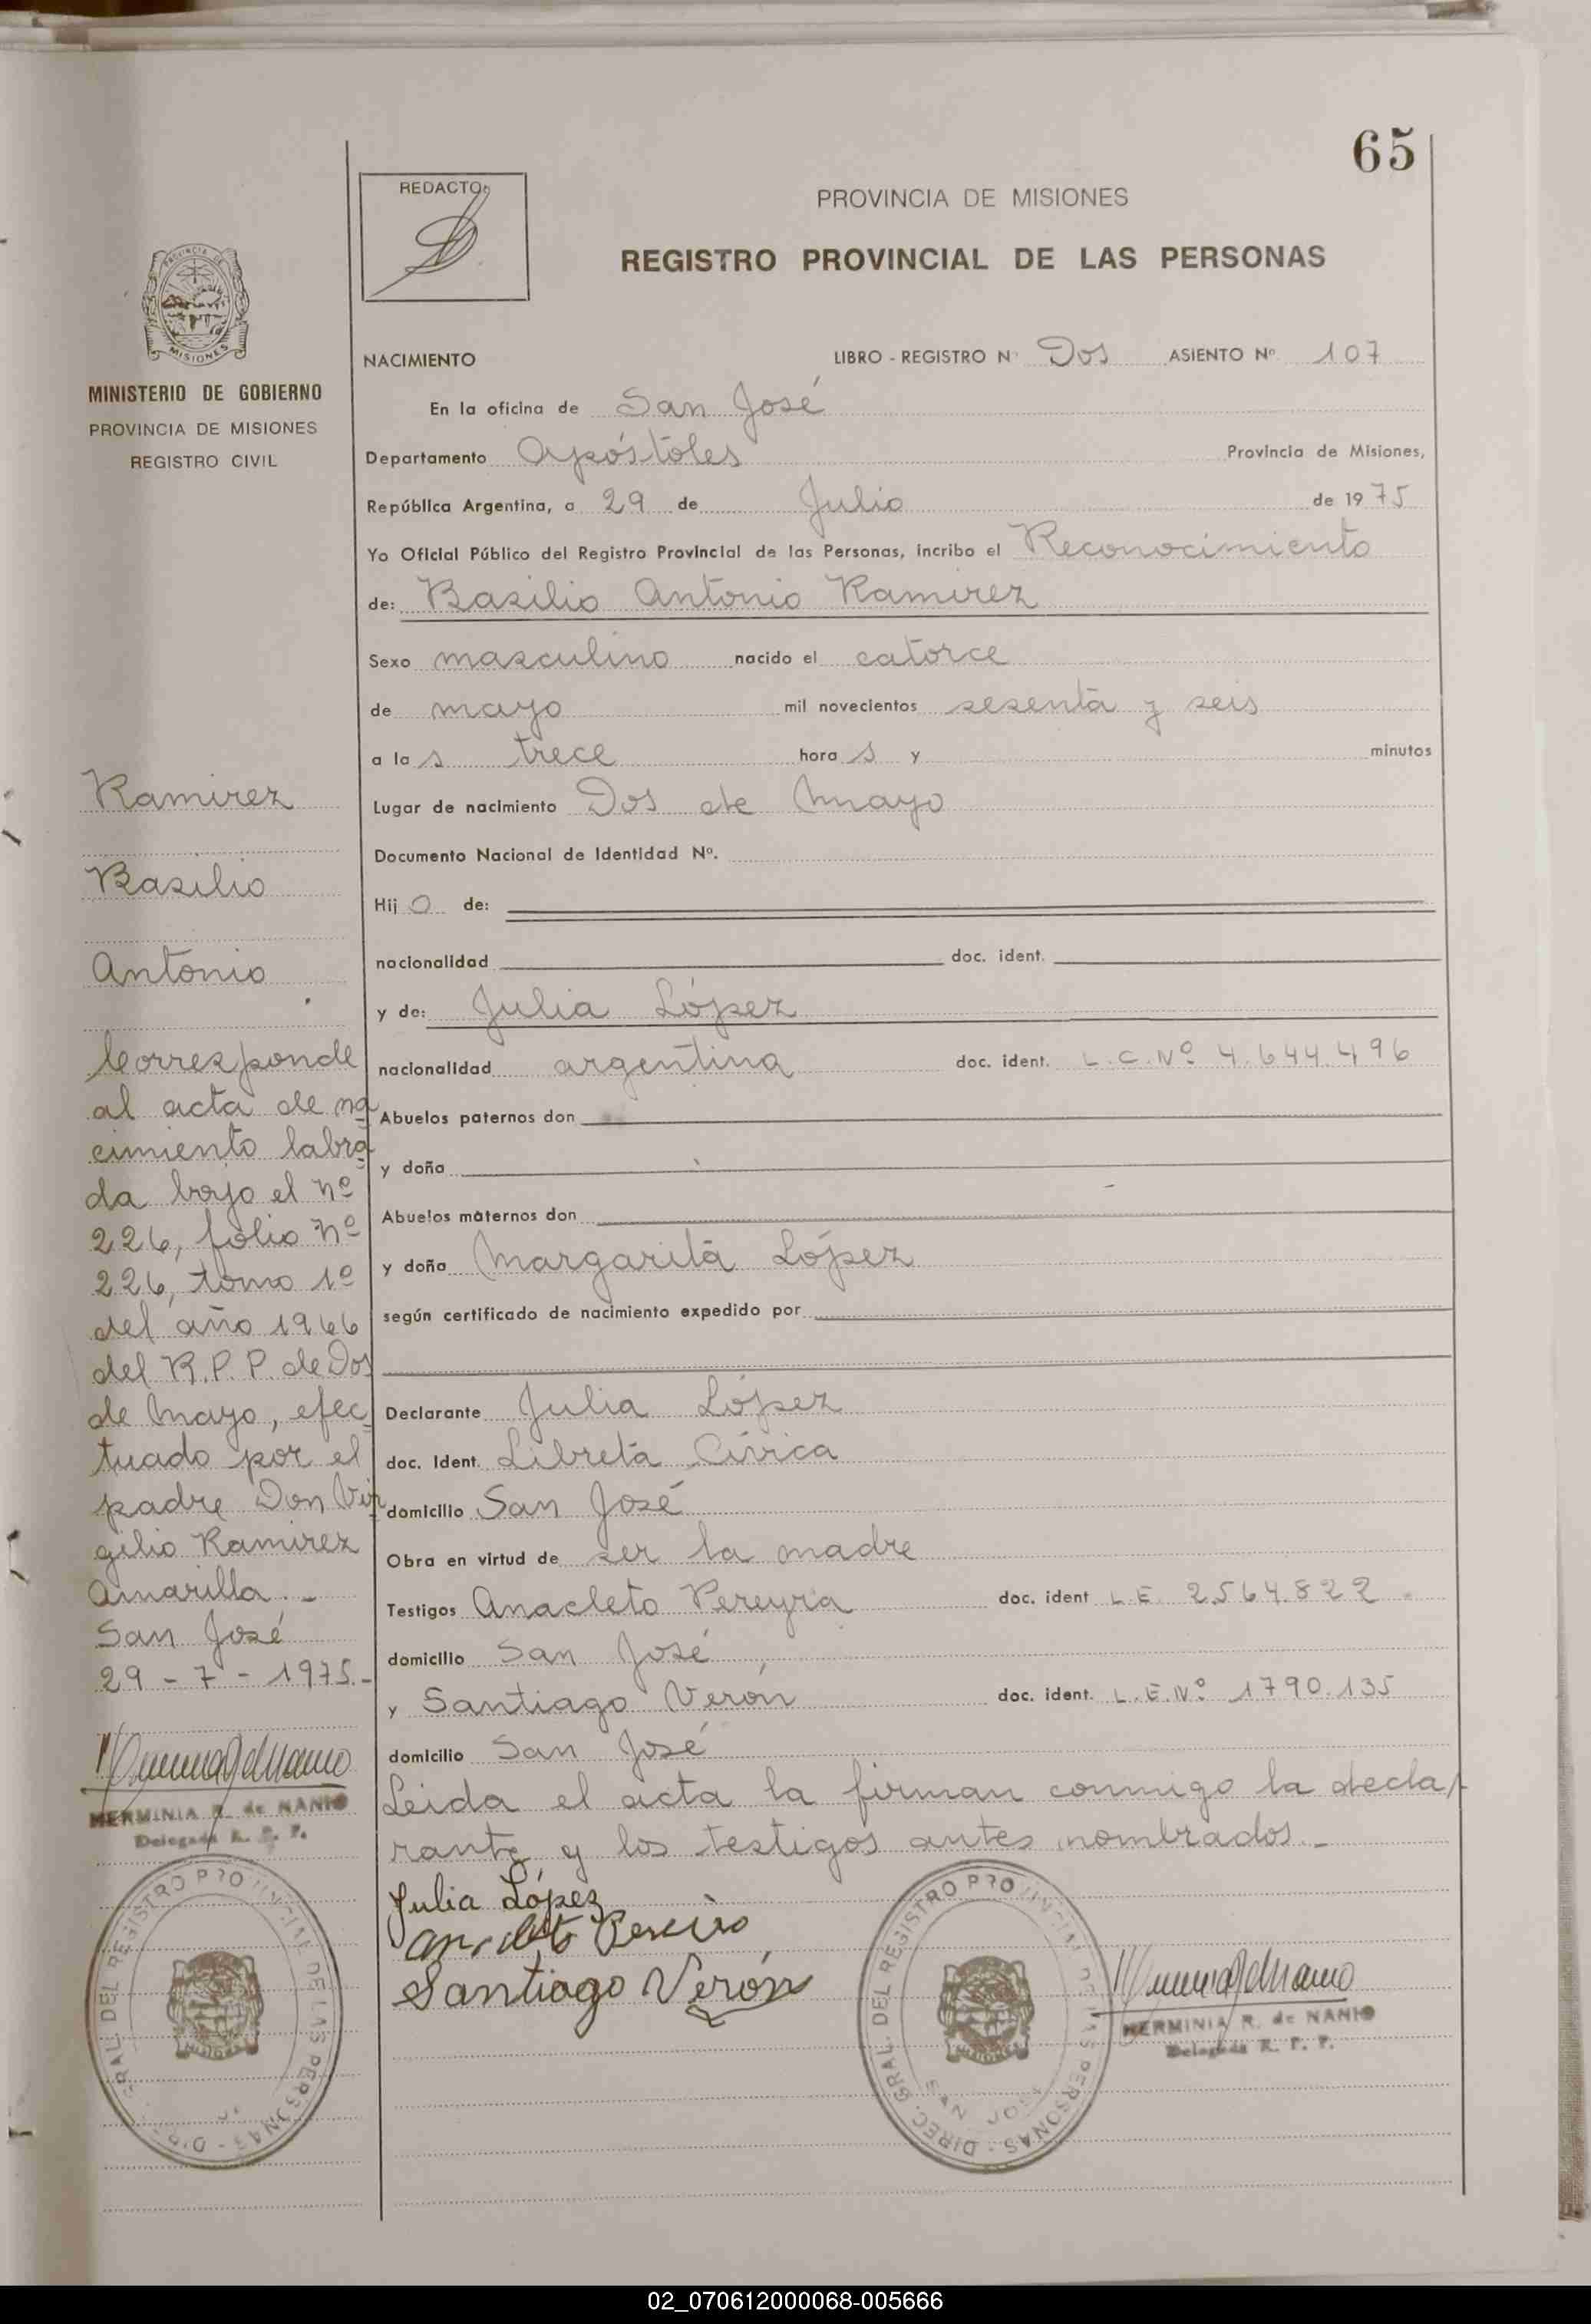 65
REDACTO:
PROVINCIA DE MISIONES
REGISTRO PROVINCIAL DE LAS PERSONAS
MISIONES
MINISTERIO DE GOBIERNO
PROVINCIA DE MISIONES
REGISTRO CIVIL
NACIMIENTO LIBRO - REGISTRO N° Dos ASIENTO Nº 107
En la oficina de San José
Departamento Apóstoles Provincia de Misiones,
República Argentina, a 29 de Julio de 1975
Yo Oficial Público del Registro Provincial de las Personas, incribo el Reconocimiento
de: Basilio Antonio Ramirez
Sexo masculino nacido el catorce
de mayo mil novecientos sesenta y seis
a las trece horas y minutos
Lugar de nacimiento Dos de Mayo
Documento Nacional de Identidad Nº.
Hijo de:
nacionalidad doc. ident.
y de: Julia López
nacionalidad argentina doc. ident. L.C.Nº 4.644.496
Abuelos paternos don
y doña
Abuelos maternos don
y doña Margarita López
según certificado de nacimiento expedido por
Declarante Julia López
doc. Ident. Libreta Cívica
domicilio San José
Obra en virtud de ser la madre
Testigos Anacleto Pereyra doc. ident L.E. 2.564.822
domicilio San José
y Santiago Verón doc. ident. L.E.Nº 1790.135
domicilio San José
Leida el acta la firman conmigo la decla
rante y los testigos antes nombrados.-
Julia López
Santiago Verón
HERMINIA R. de NANIO
Delegada R. P. P.
DIREC. GRAL. DEL REGISTRO PROVINCIAL DE LAS PERSONAS
SAN JOSE
Ramirez
Basilio
Antonio
Corresponde
al acta de na
cimiento labra
da bajo el nº
226, folio nº
226, tomo 1º
del año 1966
del R.P.P. de Dos
de Mayo, efec
tuado por el
padre Don Vir
gilio Ramirez
Amarilla.-
San José
29-7-1975.-
HERMINIA R. de NANIO
Delegada R. P. P.
GRAL. DEL REGISTRO PROVINCIAL DE LAS PERSONAS
02_070612000068-005666